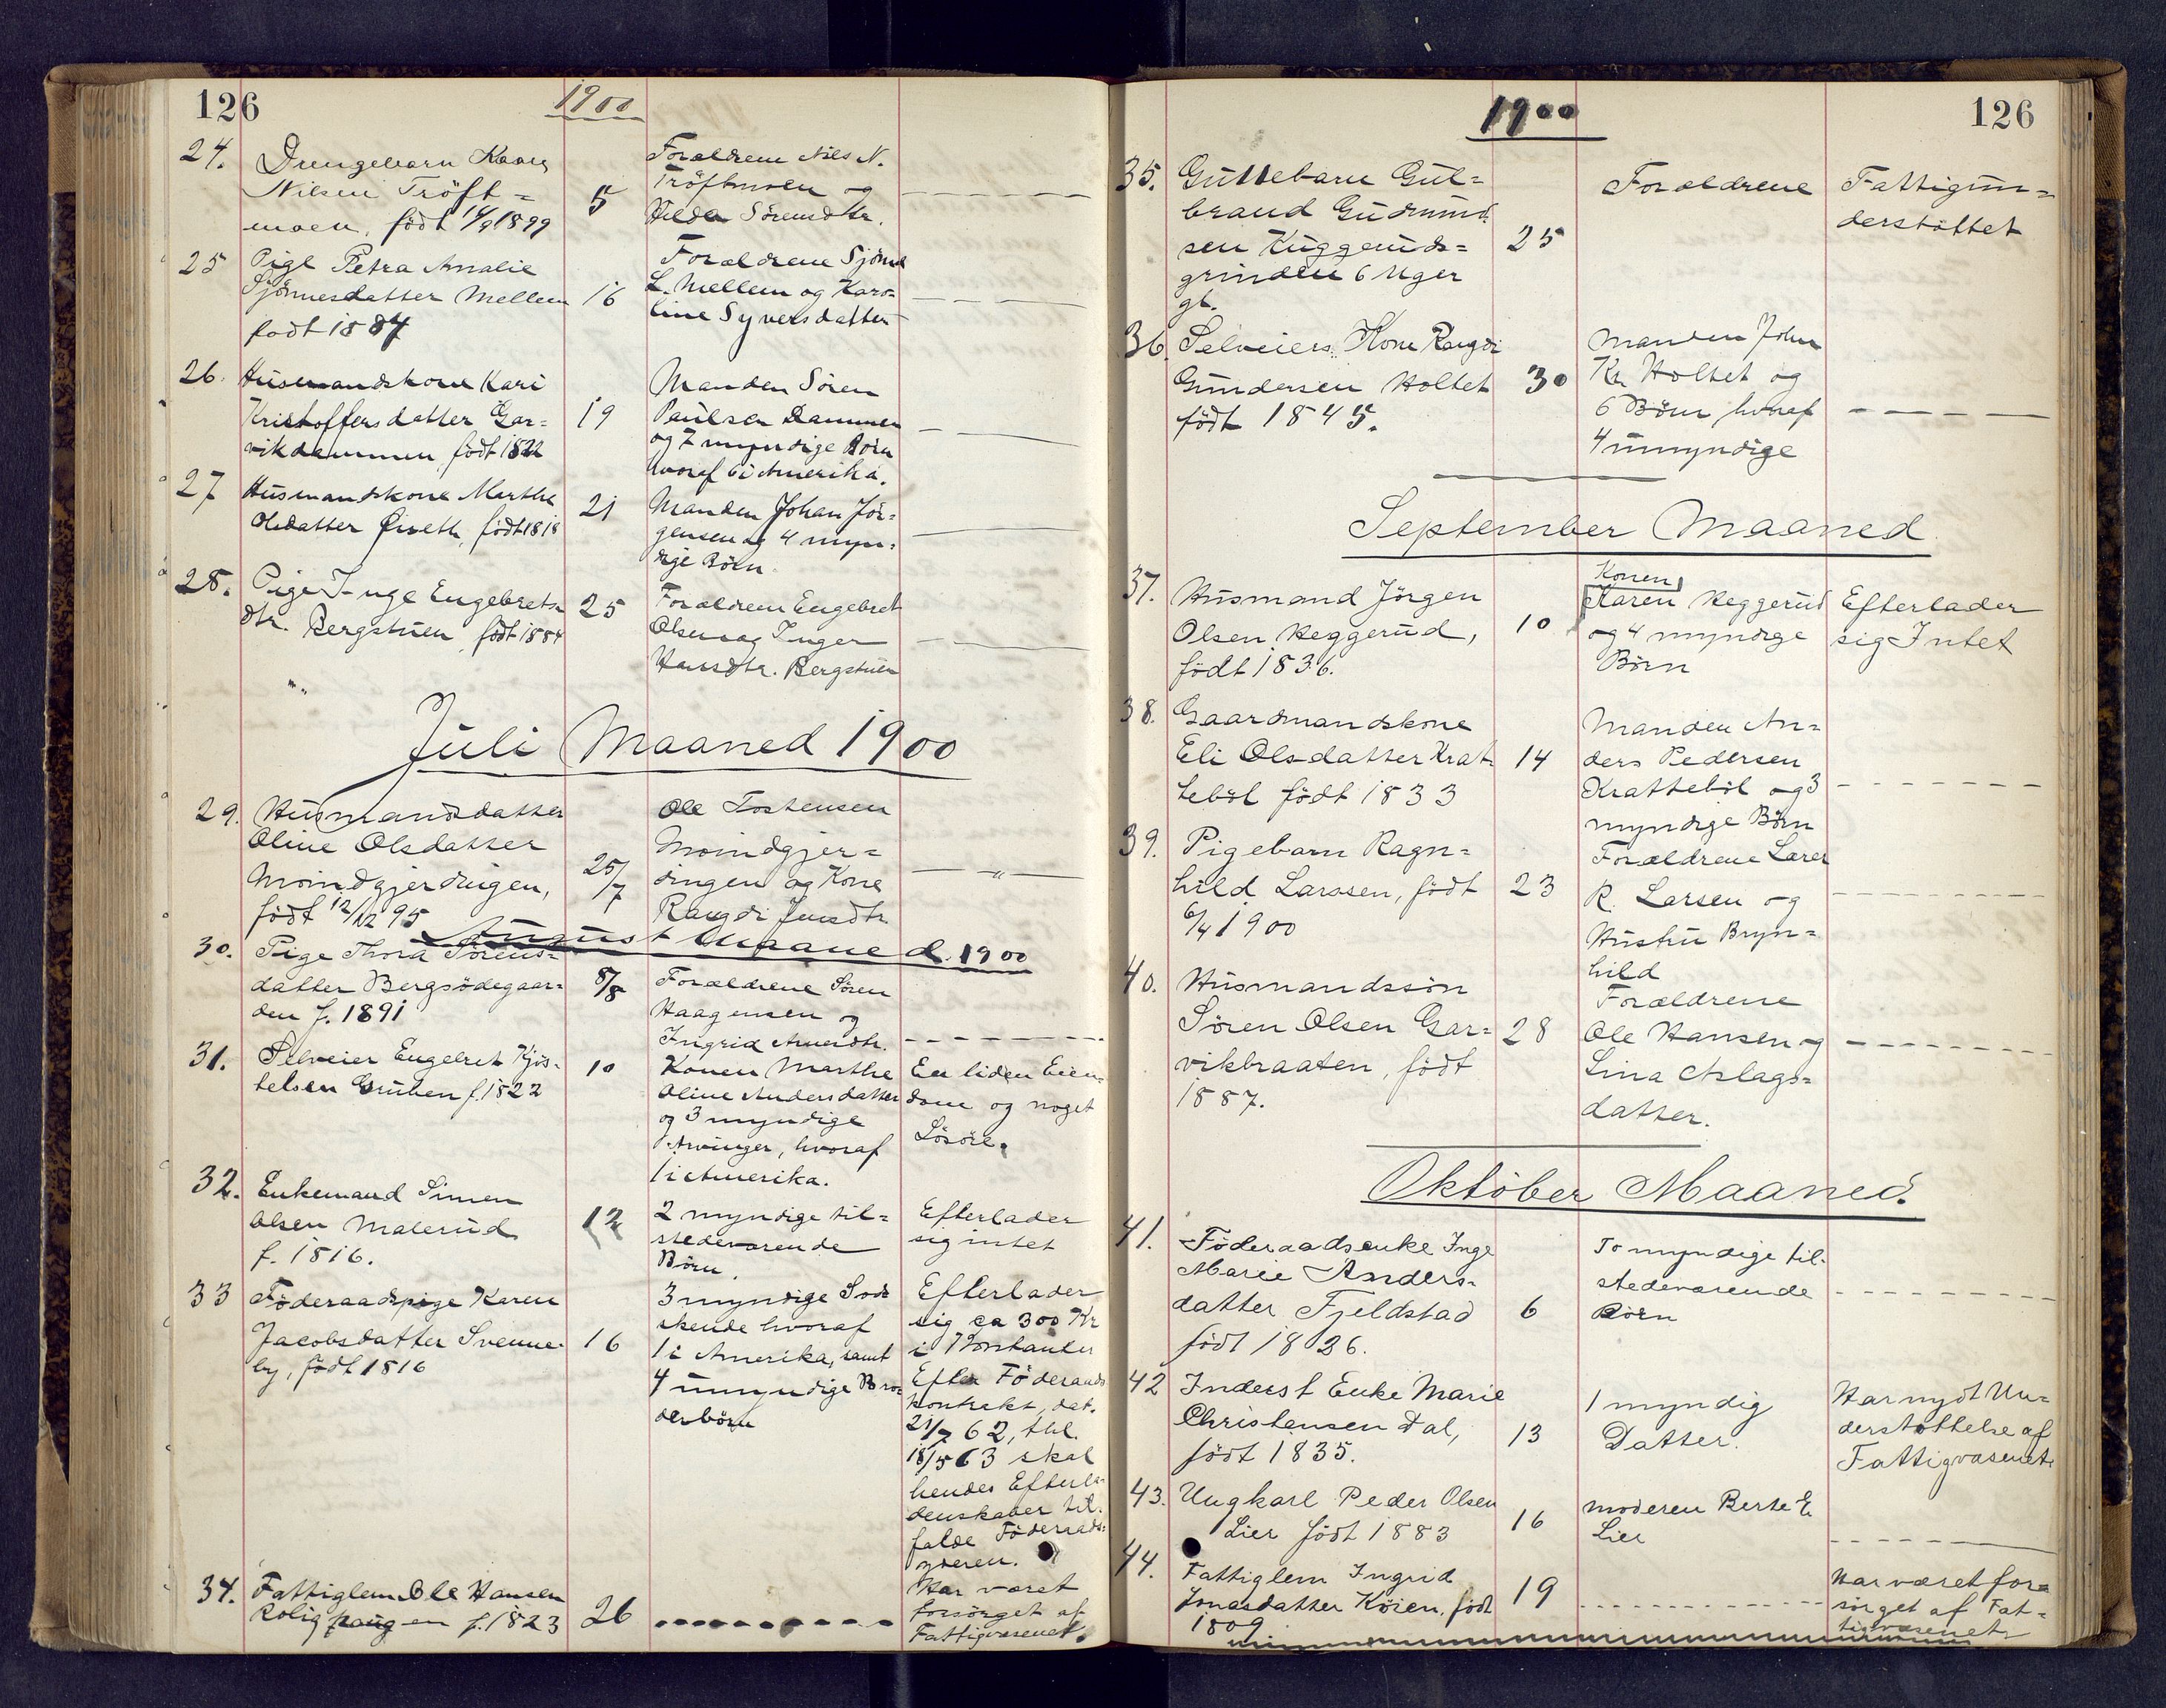 126
1900
24. Drengebarn Kaare
Nilsen Tröft=
moen, født 14/9 1899
5
Forældrene Nils N.
Tröftmoen og
Hilda Sörensdtr.
25 Pige Petra Amalie
Sjönnesdatter Mellem
født 1884
16
Forældrene Sjönne
L. Mellem og Karo=
line Syversdatter
26. Husmandskone Kari
Kristoffersdatter Gar=
vikdammen, født 1822
19
Manden Sören
Paulsen Dammen
og 7 myndige Börn
hvoraf 6 i Amerika.
27 Husmandskone Marthe
Olsdatter Öiseth, født 1818
21
Manden Johan Jör=
gensen og 4 myn=
dige Börn.
28. Pige Inge Engebrets=
dtr. Bergstuen, født 1884
25
Forældrene Engebret
Olsen og Inger
Hansdtr. Bergstuen
Juli Maaned 1900
29. Husmandsdatter
Oline Olsdatter
Moindgjerdingen,
født 12/12 95
25/7
Ole Tostensen
Moindgjer=
dingen og Kone
Rangdi Jensdtr
August Maaned. 1900
30. Pige Thora Sörens=
datter Bergsödegaar=
den f. 1891
8/8
Forældrene Sören
Haagensen og
Ingrid Amundtr.
31. Selveier Engebret Kjös=
telsen Gruben f. 1822
10
Konen Marthe
Oline Andersdatter
og 3 myndige
Arvinger, hvoraf
1 i Amerika.
En liden Eien=
dom og noget
Lösöre.
32. Enkemand Simen
Olsen Malerud
f. 1816.
12
2 myndige til=
stedeværende
Börn.
Efterlader
sig intet
33 Föderaadspige Karen
Jacobsdatter Svenne=
by, født 1816
16
3 myndige Söd=
skende hvoraf
1 i Amerika, samt
4 umyndige Bro=
derbörn
Efterlader
sig ca 300 Kr
i Kontanter
Efter Föderaads
kontrakt, dat.
21/7 62, thl.
18/5 63 skal
hendes Efterla=
denskaber til=
falde Föderaads=
yderen.
34. Fattiglem Ole Hansen
Rolighaugen f. 1823
26
Har været
forsörget af
Fattigvæsenet.
1900
126
35. Guttebarn Gul=
brand Gudmund
sen Kuggeruds=
grinden 6 Uger
gl.
25
Forældrene
Fattigun=
derstöttet
36. Selveiers Kone Rangdi
Gundersen Holtet
født 1845.
30
Manden John
Kr. Holtet og
6 Börn, hvoraf
4 umyndige
September Maaned
37. Husmand Jörgen
Olsen Heggerud,
født 1836.
10
Konen
Karen Heggerud
og 4 myndige
Börn
Efterlader
sig Intet
38. Gaardmandskone
Eli Olsdatter Krat=
tebøl født 1833
14
Manden An=
ders Pedersen
Krattebøl og 3
myndige Börn
39. Pigebarn Ragn=
hild Larssen, født
6/4 1900
23
Forældrene Lærer
R. Larsen og
Hustru Bryn=
hild
40. Husmandssön
Sören Olsen Gar=
vikbraaten, født
1887.
28
Forældrene
Ole Hansen og
Lina Aslags=
datter.
Oktober Maaned.
41. Föderaadsenke Inge
Marie Anders=
datter Fjeldstad
født 1826.
6
To myndige til=
stedeværende
Börn
42 Inderst Enke Marie
Christensen Dal,
født 1835.
13
1 myndig
Datter.
Har nydt Un=
derstøttelse af
Fattigvæsenet.
43. Ungkarl Peder Olsen
Lier født 1883
16
Moderen Berte E.
Lier
44. Fattiglem Ingrid
Jonasdatter Köien, født
1809
19
Har været for=
sörget af Fat=
tigvæsenet